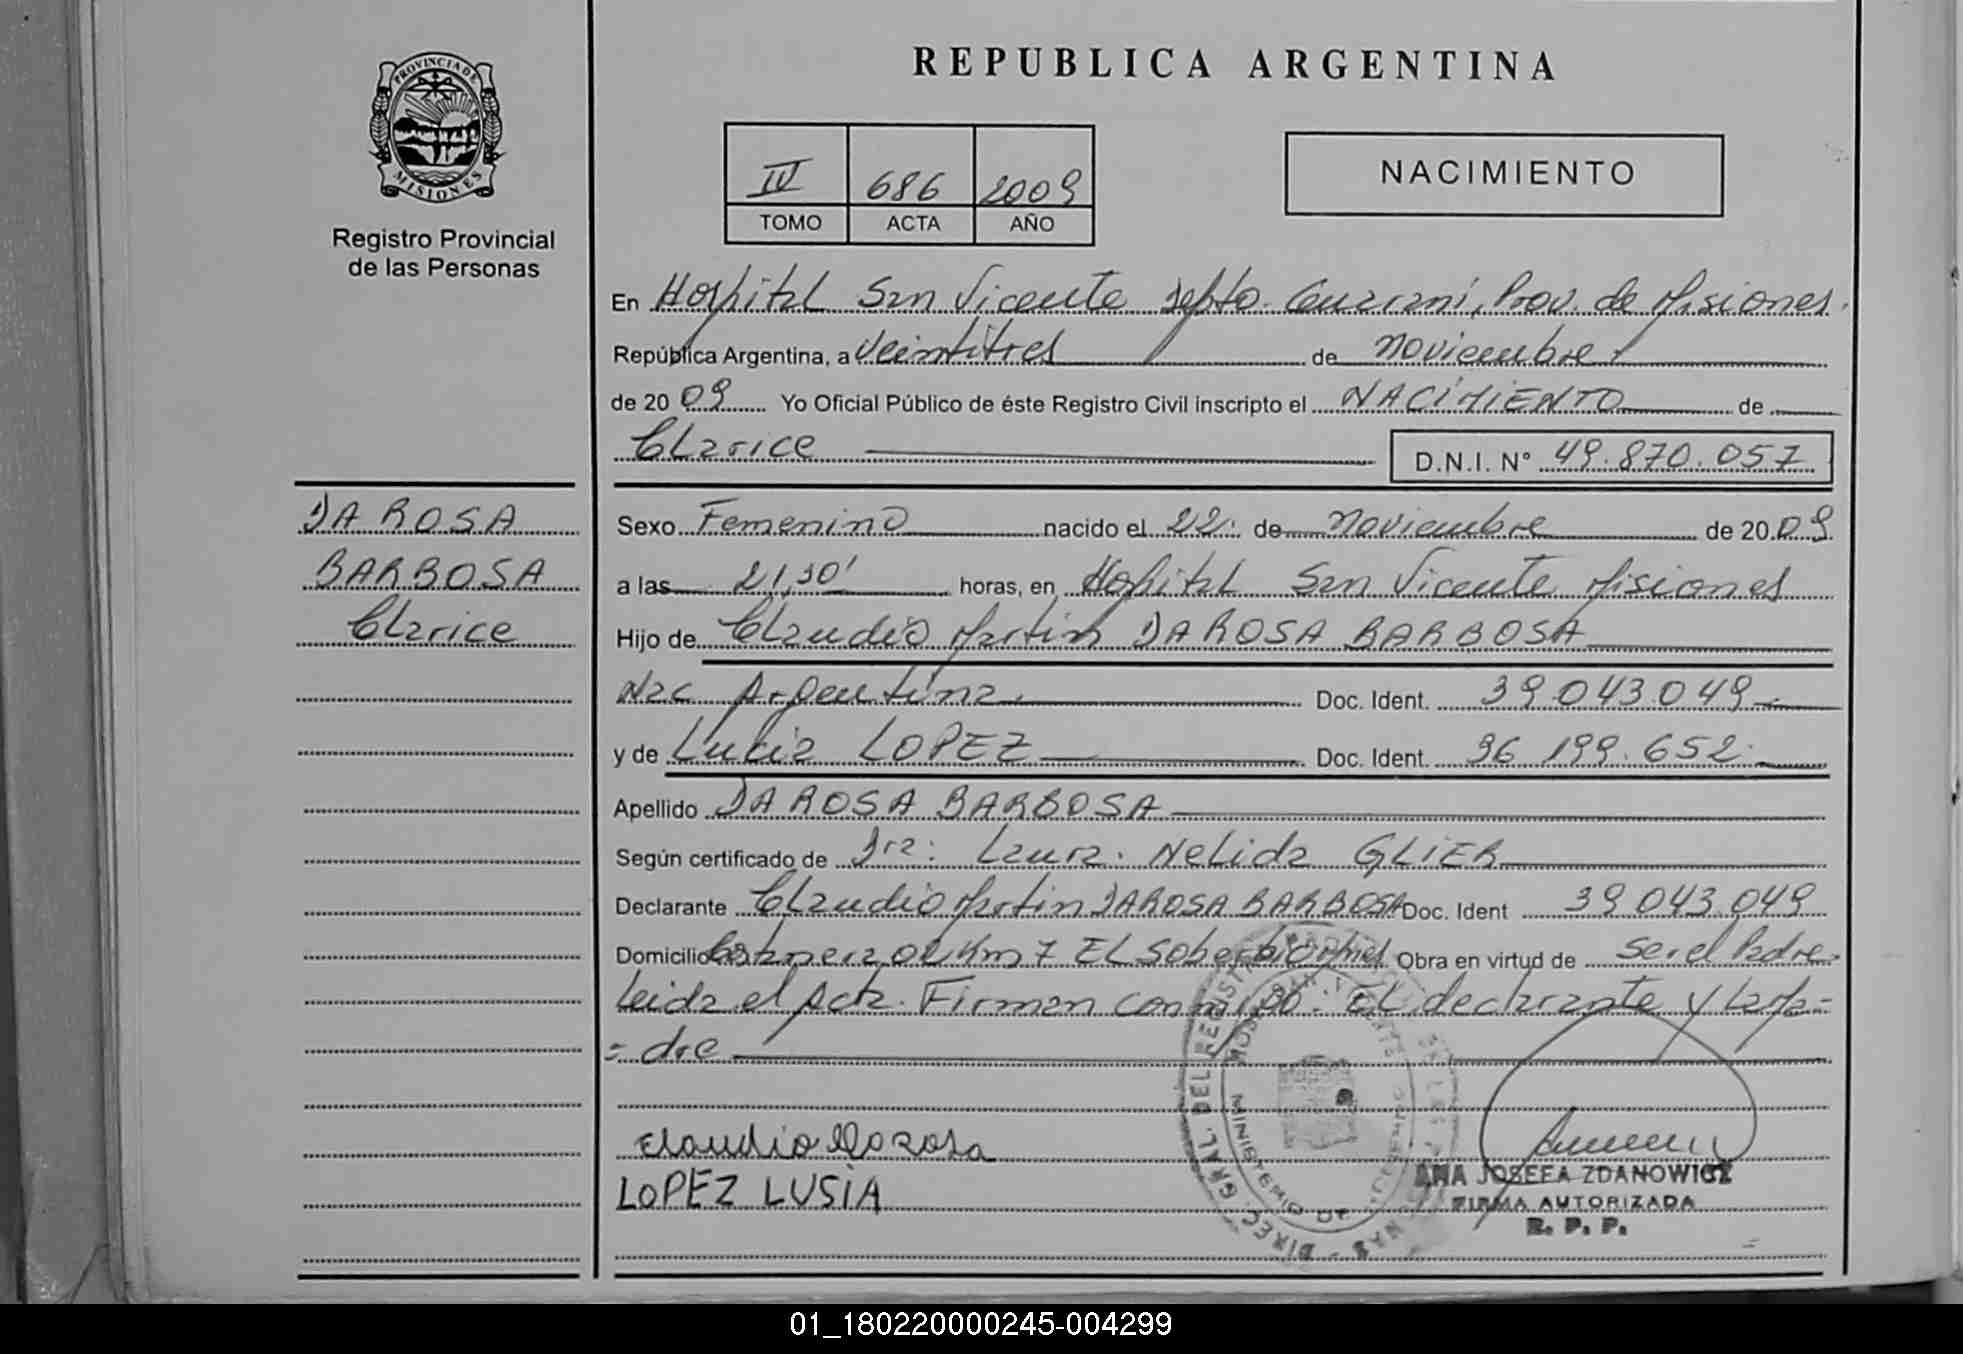 PROVINCIA DE
MISIONES
Registro Provincial
de las Personas
REPUBLICA ARGENTINA
IV 686 2009
TOMO ACTA AÑO
NACIMIENTO
En Hospital San Vicente Depto. Guarani, Prov. de Misiones.
República Argentina, a veintitres de noviembre
de 20 09 Yo Oficial Público de éste Registro Civil inscripto el NACIMIENTO de
Clarice
D.N.I. N° 49.870.057
DA ROSA
BARBOSA
Clarice
Sexo Femenino nacido el 22 de noviembre de 20 09
a las 21,30' horas, en Hospital San Vicente Misiones
Hijo de Claudio Martin DA ROSA BARBOSA
Nac Argentina. Doc. Ident. 39.043.049
y de Lucia LOPEZ Doc. Ident. 36.199.652
Apellido DA ROSA BARBOSA
Según certificado de Dra: Laura. Nelida GLIER
Declarante Claudio Martin DA ROSA BARBOSA Doc. Ident 39.043.049
Domicilio Km 7 EL Soberbio Mnes Obra en virtud de ser el Padre
Leida el Acta. Firman conmigo. EL declarante y La Ma=
=dre
Claudio Da rosa
LOPEZ LUSIA
DIREC. GRAL. DEL REGIST
MINISTERIO DE GOBIERNO
ANA JOSEFA ZDANOWICZ
FIRMA AUTORIZADA
R. P. P.
01_180220000245-004299